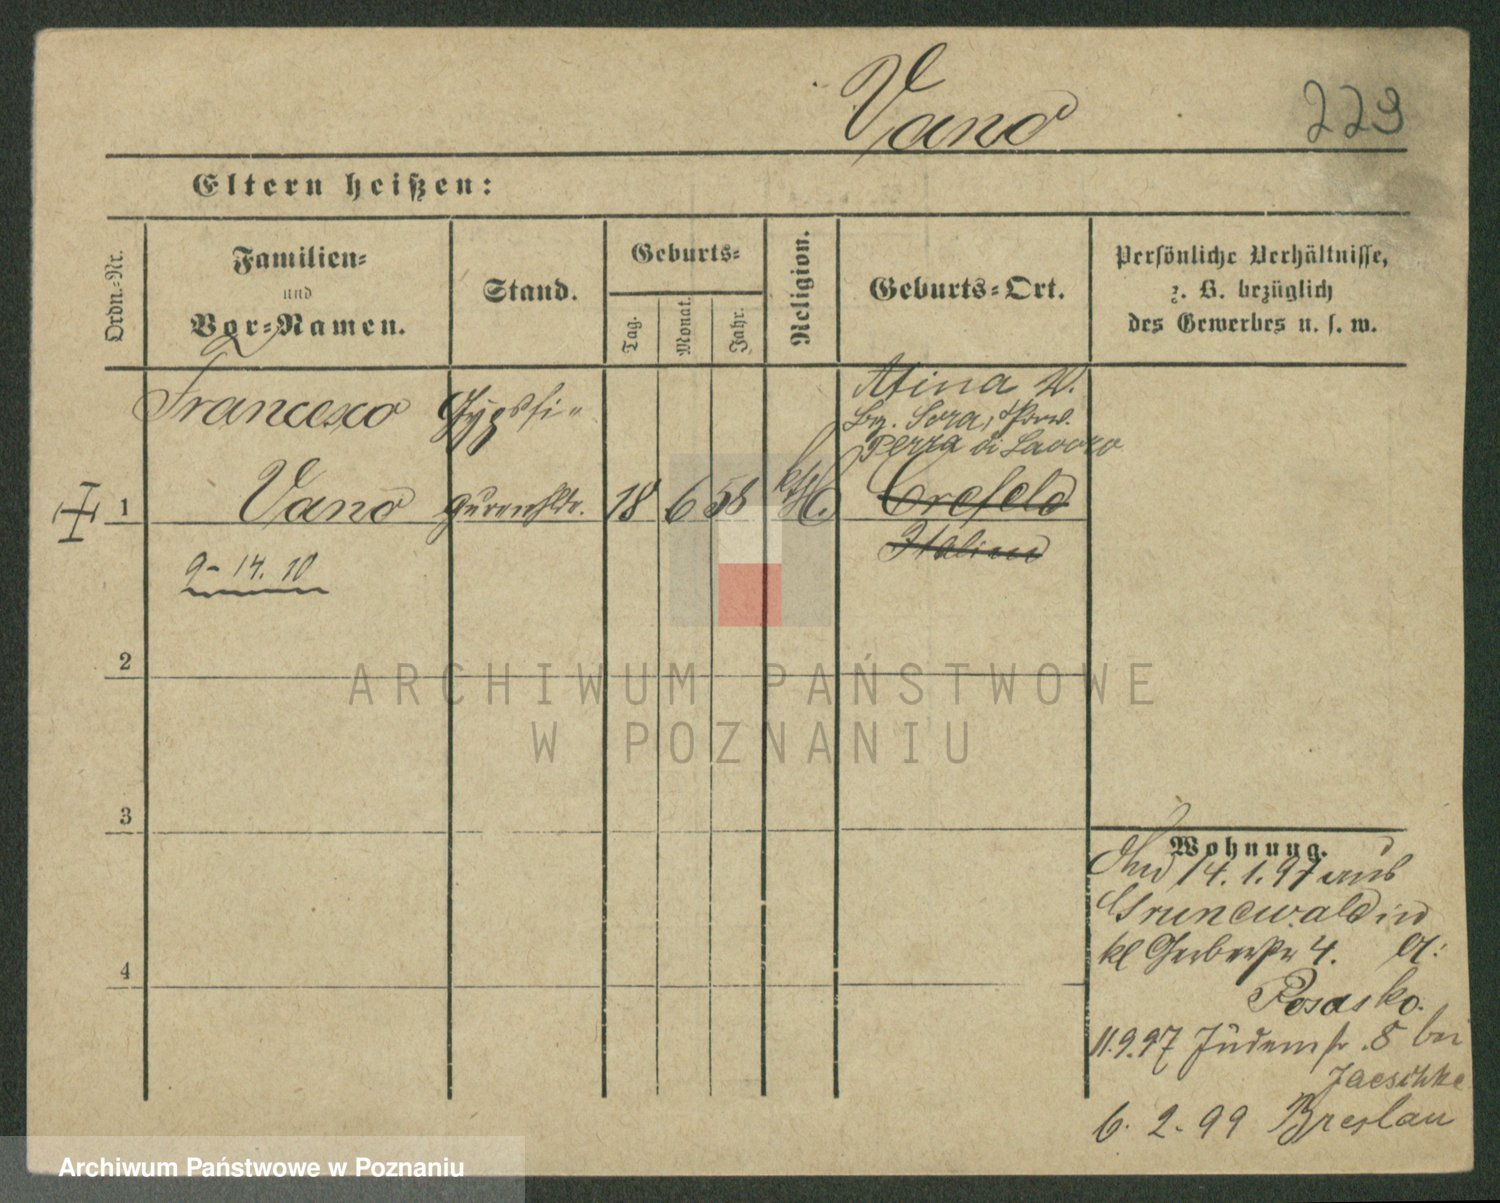 Vano
223
Eltern heißen:
Ordn.-Nr.
Familien-
und
Vor-Namen.
Stand.
Geburts-
Tag.
Monat.
Jahr.
Religion.
Geburts-Ort.
Persönliche Verhältnisse,
z. B. bezüglich
des Gewerbes u. s. w.
Francesco
Gypsfi-
Atina
Sora, Prov.
di Lavoro
1
Vano
18
6
58
kth.
Crefeld
Italien
9-14.10
2
3
4
Wohnung.
14.1.97 aus
Grunewald in
kl Gerberstr 4.
Posasko.
11.9.97 Judenstr. 8 bei
Jaeschke
6. 2. 99 Breslau
ARCHIWUM PAŃSTWOWE
W POZNANIU
Archiwum Państwowe w Poznaniu